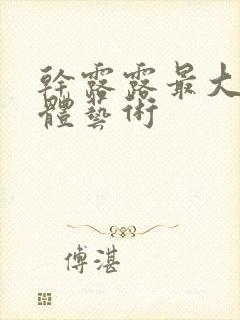 幹露露最大
體藝術
傅湛